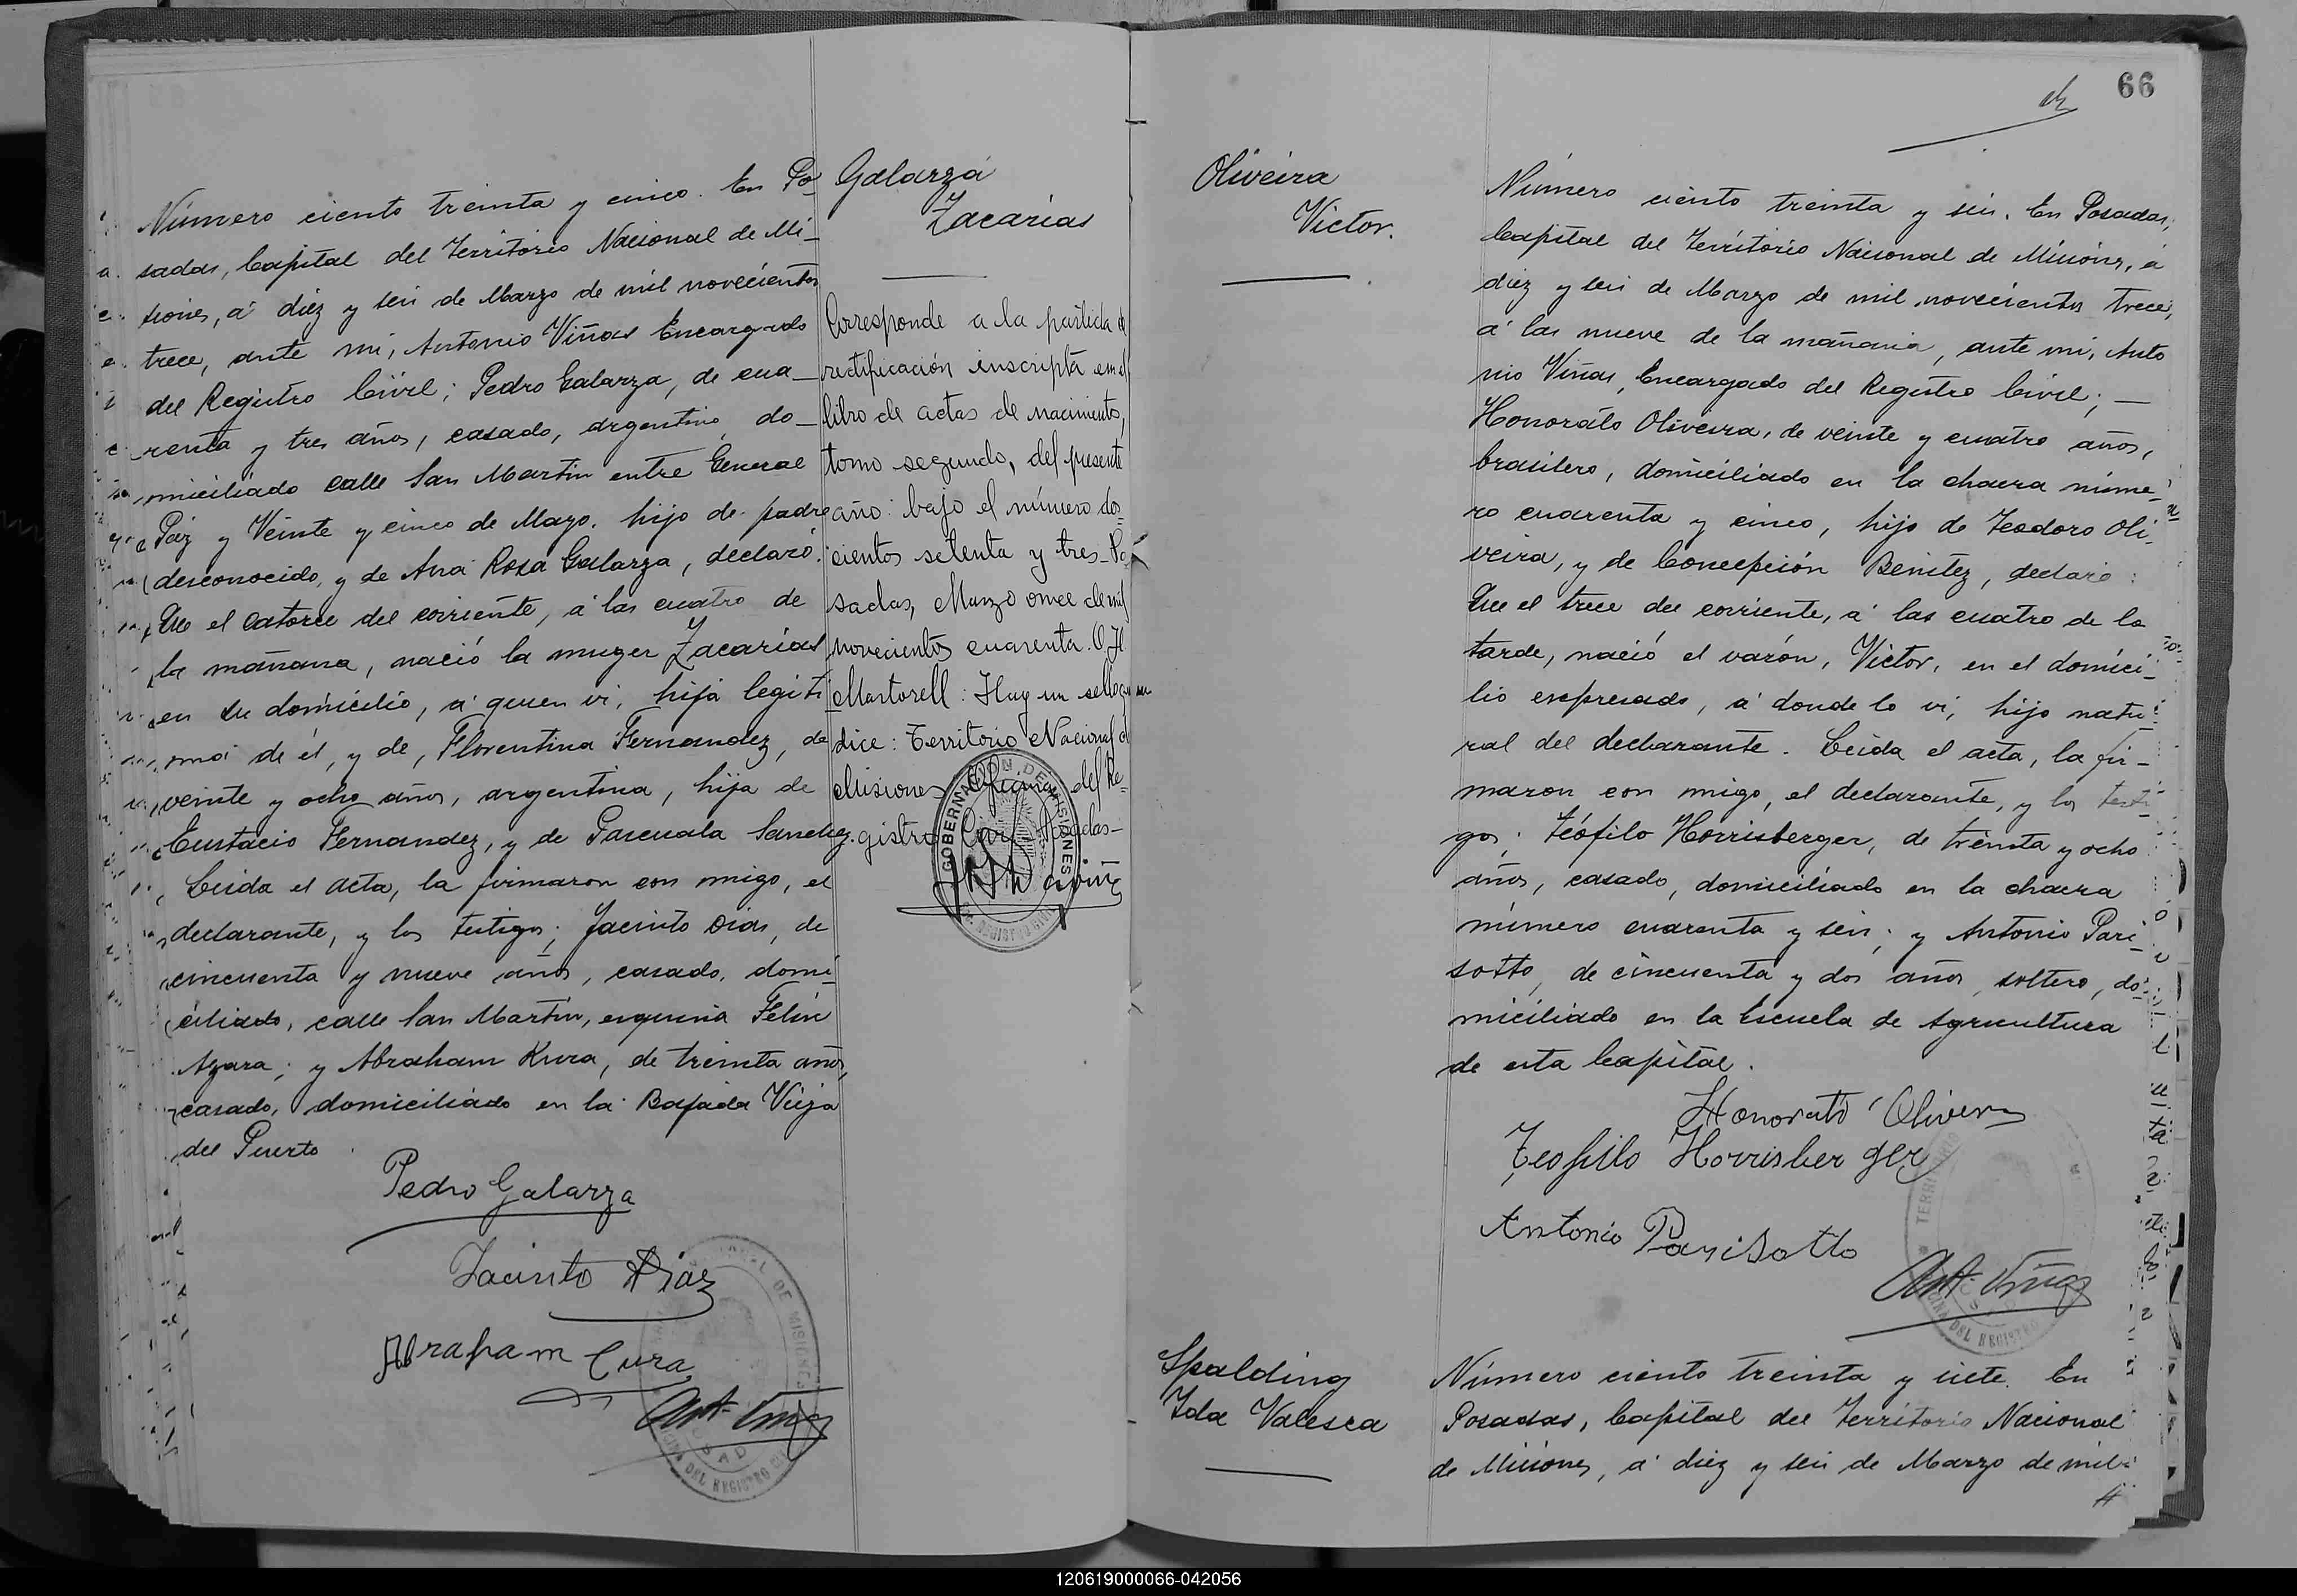 Número ciento treinta y cinco. En Po
sadas, Capital del Territorio Nacional de Mi_
siones, á diez y seis de Marzo de mil novecientos
trece, ante mi, Antonio Viñas Encargado
del Registro Civil; Pedro Galarza, de cua_
renta y tres años, casado, argentino, do_
miciliado calle San Martin entre General
Paz y Veinte y cinco de Mayo, hijo de padre
desconocido, y de Ana Rosa Galarza, declaró.
Que el catorce del corriente, á las cuatro de
la mañana, nació la muger Zacarías
en su domicilio, á quien vi, hija legiti
ma de él, y de, Florentina Fernandez, de
veinte y ocho años, argentina, hija de
Eustacio Fernandez, y de Pascuala Sanchez.
Leida el acta, la firmaron con migo, el
declarante, y los testigos; Jacinto Dias, de
cincuenta y nueve años, casado, domi_
ciliado, calle San Martin, esquina Felix
Azara; y Abraham Kura, de treinta años,
casado, domiciliado en la Bajada Vieja
del Puerto
Pedro Galarza
Jacinto Diaz
Abraham Cura
Ant. Viñas
Galarza
Zacarías
Corresponde a la partida de
rectificación inscripta en el
libro de actas de nacimiento,
tomo segundo, del presente
año: bajo el número dos=
cientos setenta y tres_Po
sadas, Marzo once de mil
novecientos cuarenta. O.H.
Martorell: Hay un sello que
dice: Territorio Nacional de
Misiones Oficina del Re=
gistro Civil Posadas_
GOBERNACIÓN DE MISIONES
66
Oliveira
Victor.
Número ciento treinta y seis. En Posadas,
Capital del Territorio Nacional de Misiones, á
diez y seis de Marzo de mil novecientos trece,
á las nueve de la mañana, ante mi, Anto
nio Viñas, Encargado del Registro Civil; _
Honorato Oliveira, de veinte y cuatro años,
brasilero, domiciliado en la chacra núme_
ro cuarenta y cinco, hijo de Teodoro Oli_
veira, y de Concepción Benitez, declaró:
Que el trece del corriente, á las cuatro de la
tarde, nació el varón, Victor, en el domici_
lio expresado, á donde lo vi, hijo natu
ral del declarante. Leida el acta, la fir_
maron con migo, el declarante, y los testi
gos; Teófilo Horrisberger, de treinta y ocho
años, casado, domiciliado en la chacra
número cuarenta y seis; y Antonio Pari_
sotto, de cincuenta y dos años, soltero, do_
miciliado en la Escuela de Agricultura
de esta Capital.
Honorato Olivera
Teofilo Horrisberger
Antonio Parisotto
Ant. Viñas
Spalding
Ida Valesca
Número ciento treinta y siete. En
Posadas, Capital del Territorio Nacional
de Misiones, á diez y seis de Marzo de mil
120619000066-042056